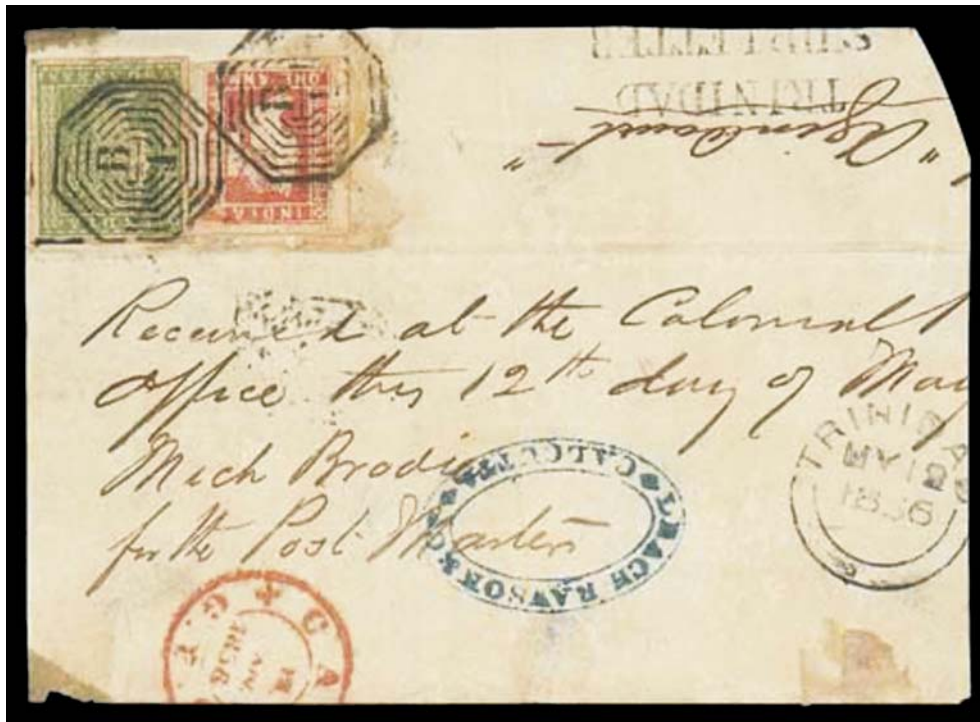 SHIP LETTER
TRINIDAD
"Agincourt"
ONE ANNA
INDIA
B
1
B
1
Received at the Colonial
Office this 12th day of May
Mich Brodie
for the Post Master
LEACH RAWSON & CO
CALCUTTA
TRINIDAD
MY 12
1856
CA
1856